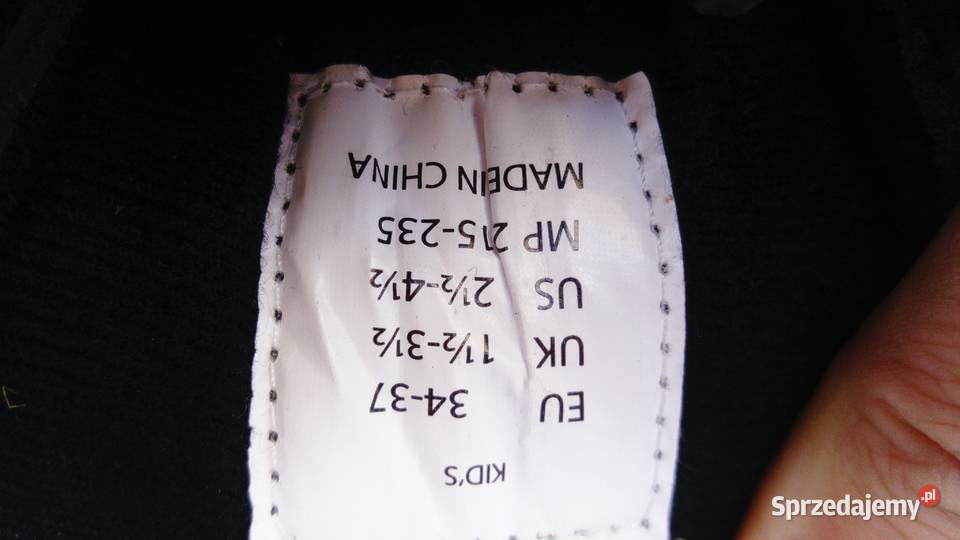 KID'S
EU 34-37
UK 1½-3½
US 2½-4½
MP 215-235
MADE IN CHINA
Sprzedajemy.pl